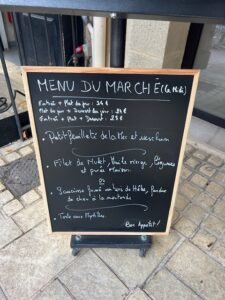 MENU DU MARCHÉ (Le Midi)
Entrée + Plat du jour : 24 €
Plat du jour + Dessert du jour : 24 €
Entrée + Plat + Dessert : 29 €
• Petit feuilleté de la Mer et
• Filet de Mulet, Huile vierge, Légumes
et purée Maison.
ou
de Morteau,
de chou à la moutarde
• Tarte aux Myrtilles.
Bon Appétit !